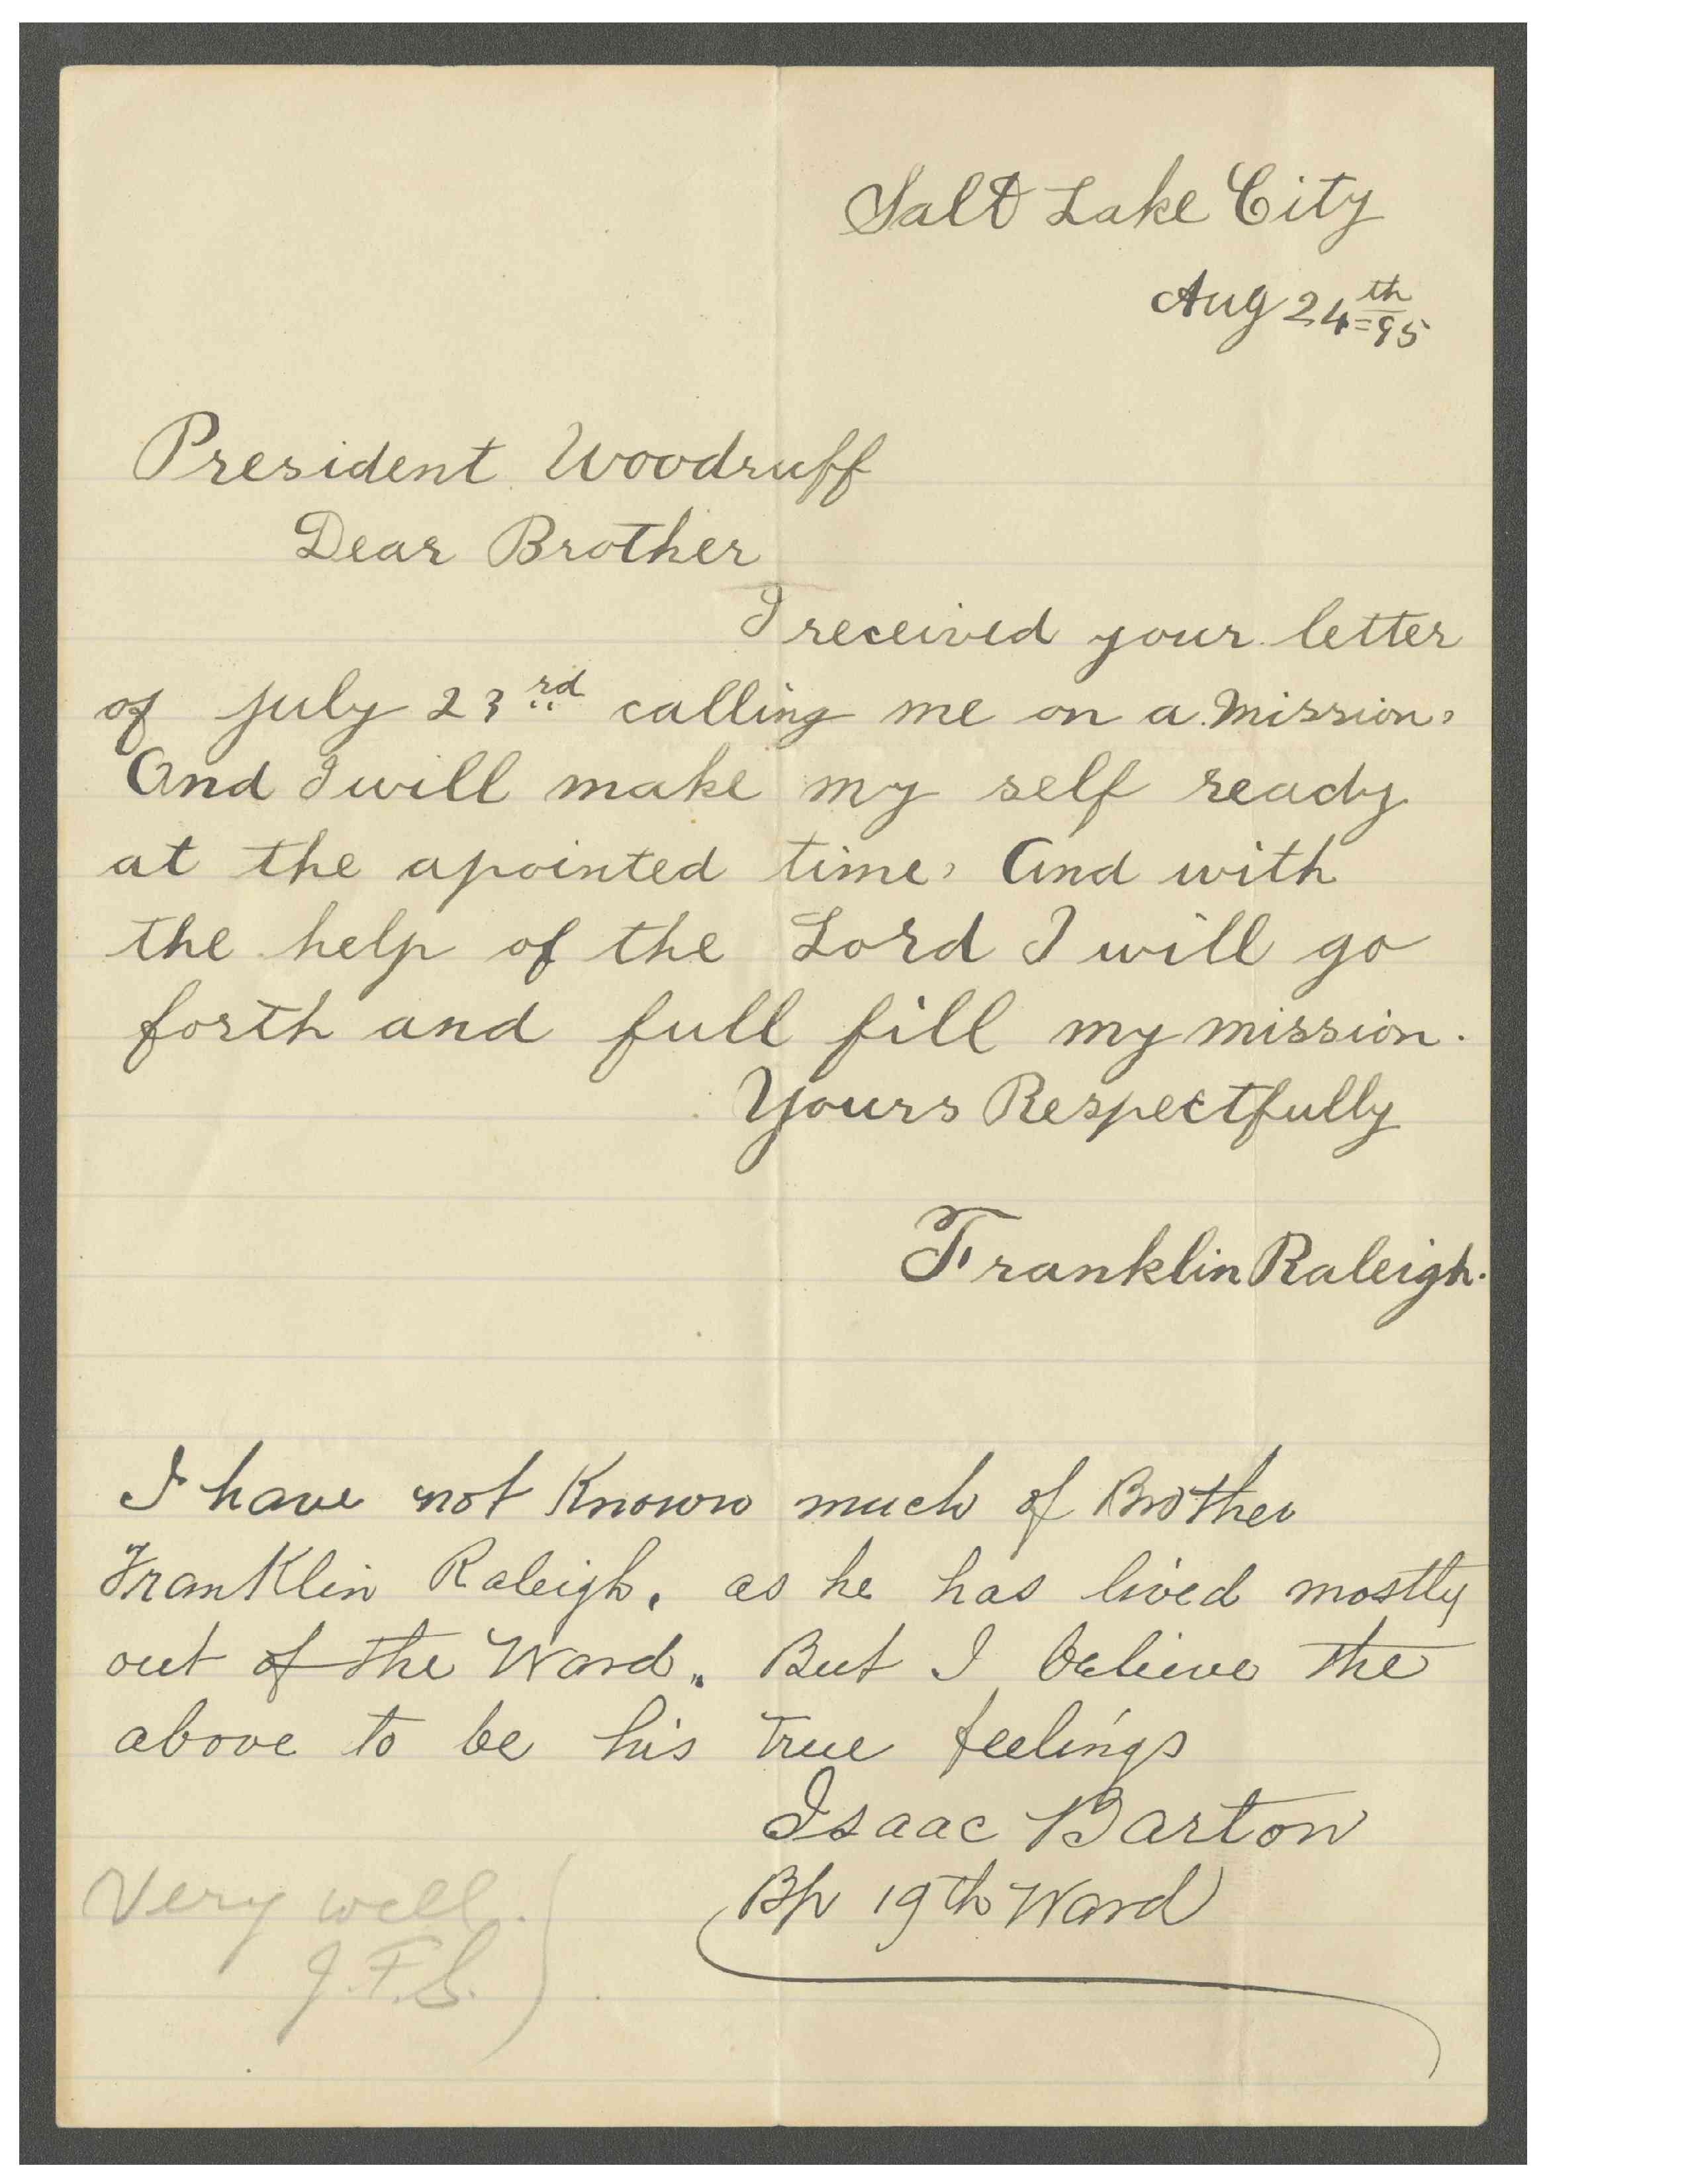 Salt Lake City
Aug 24th=95
President Woodruff
Dear Brother
I received your letter
of july 23rd calling me on a mission,
And I will make my self ready
at the apointed time, And with
the help of the Lord I will go
forth and full fill my mission.
Yours Respectfully
Franklin Raleigh.
I have not Known much of Brother
Franklin Raleigh, as he has lived mostly
out of the Ward. But I believe the
above to be his true feelings
Isaac Barton
Bp 19th Ward
Very well.
J.F.S.